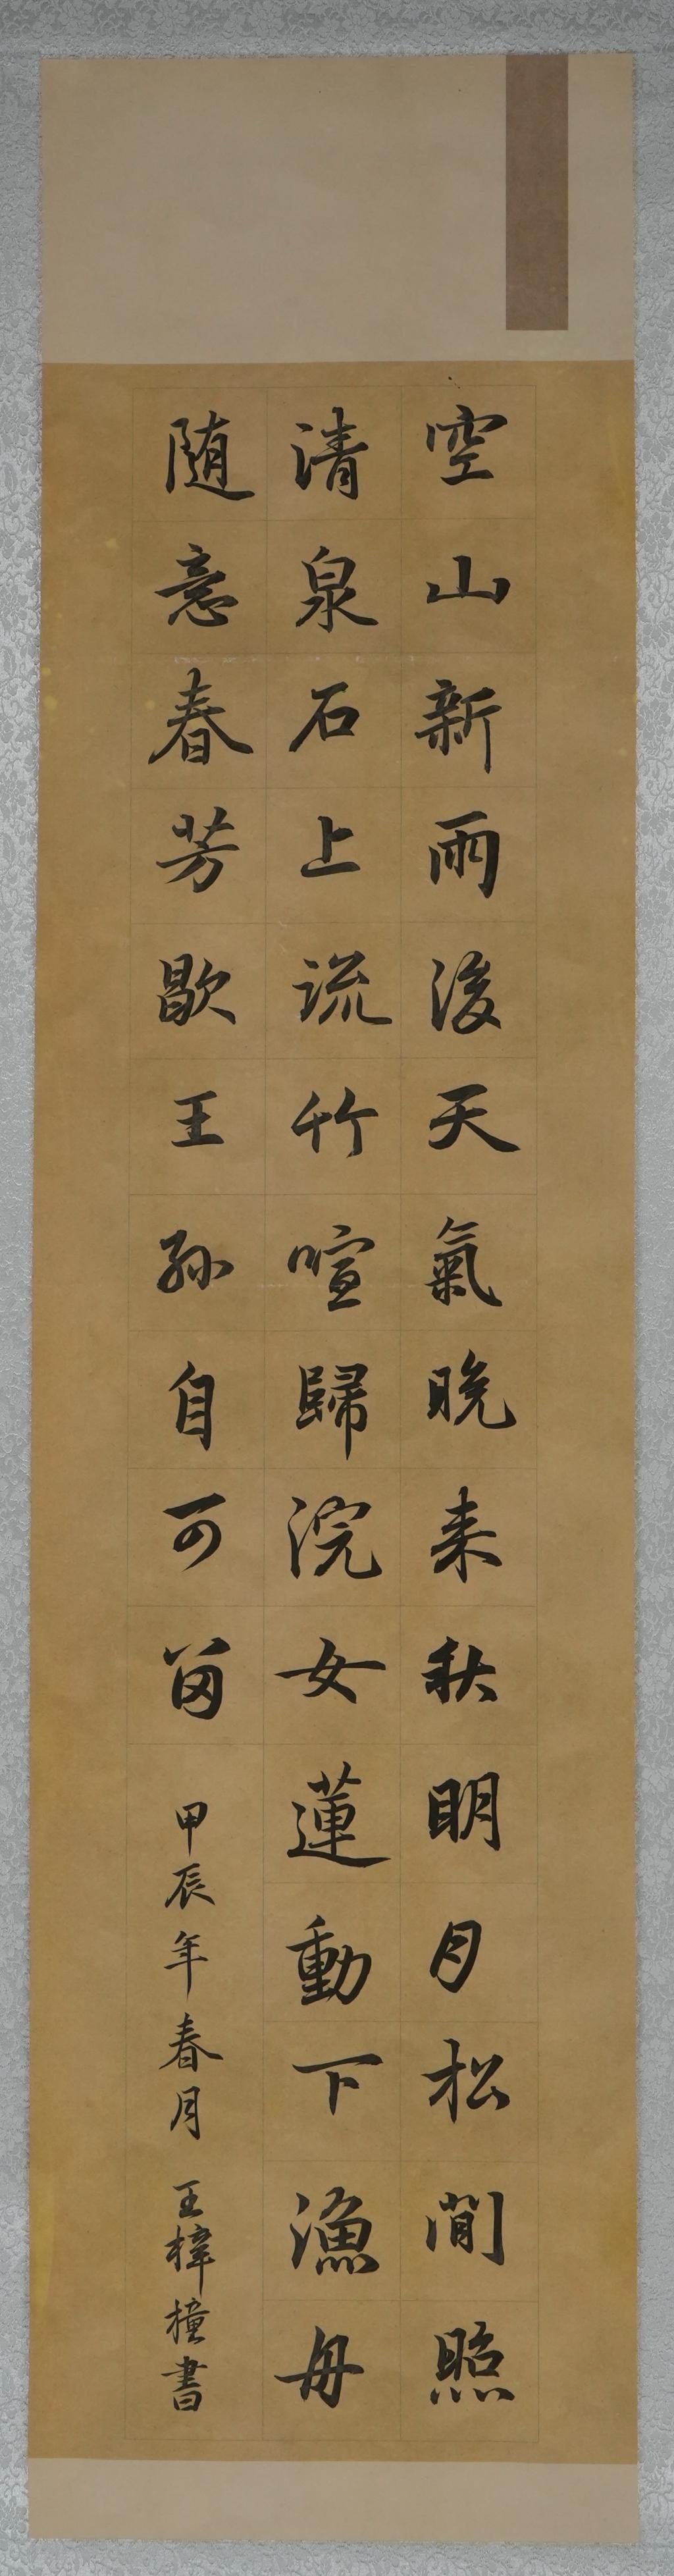 空山新雨後天氣晚来秋明月松間照
清泉石上流竹喧歸浣女蓮動下漁舟
随意春芳歇王孫自可留
甲辰年春月 王梓橦書